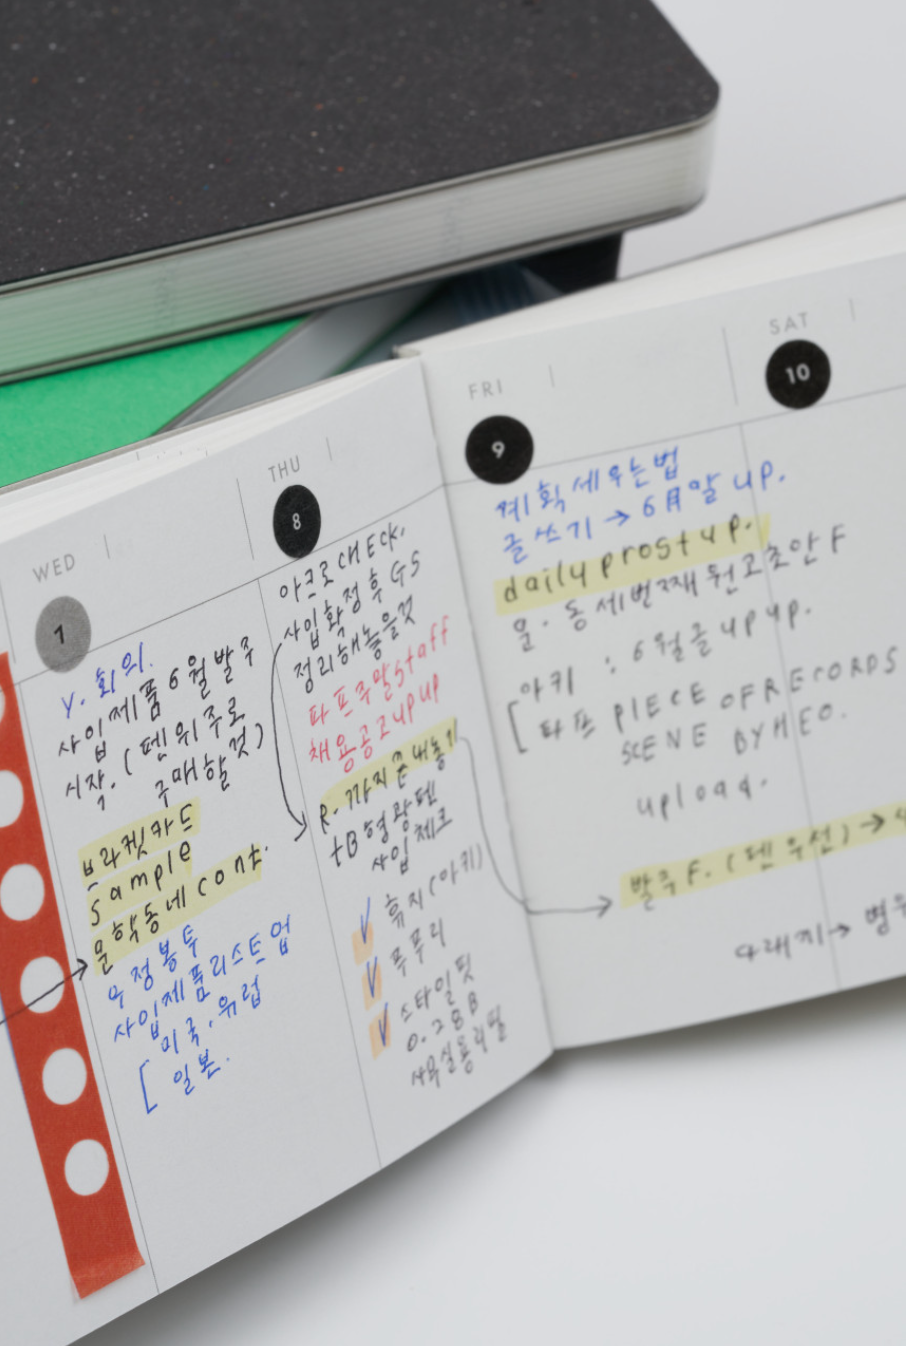 WED
7
Y. 회의.
사입제품 6월 발주
시작. (펜위주로
구매할 것)
브라켓카드
Sample
문학동네 cont.
우정봉투
사입제품리스트업
[미국. 유럽
일본.
THU
8
아크로 CHECK.
사입확정 후 GS
정리해놓을것
타프주말staff
채용공고upup
R. 까지 끝내놓기
tB형광펜
사입체크
휴지(아키)
푸푸리
스타일핏
0.28B
사무실용리필
FRI
9
계획세우는법
글쓰기 → 6月말 up.
daily prost up.
문.동 세번째 원고초안 F
[아키 : 6월글 up up.
타프 PIECE OF RECORDS
SCENE BY HEO.
upload.
발주 F. (펜 우선) →
다래끼 →
SAT
10